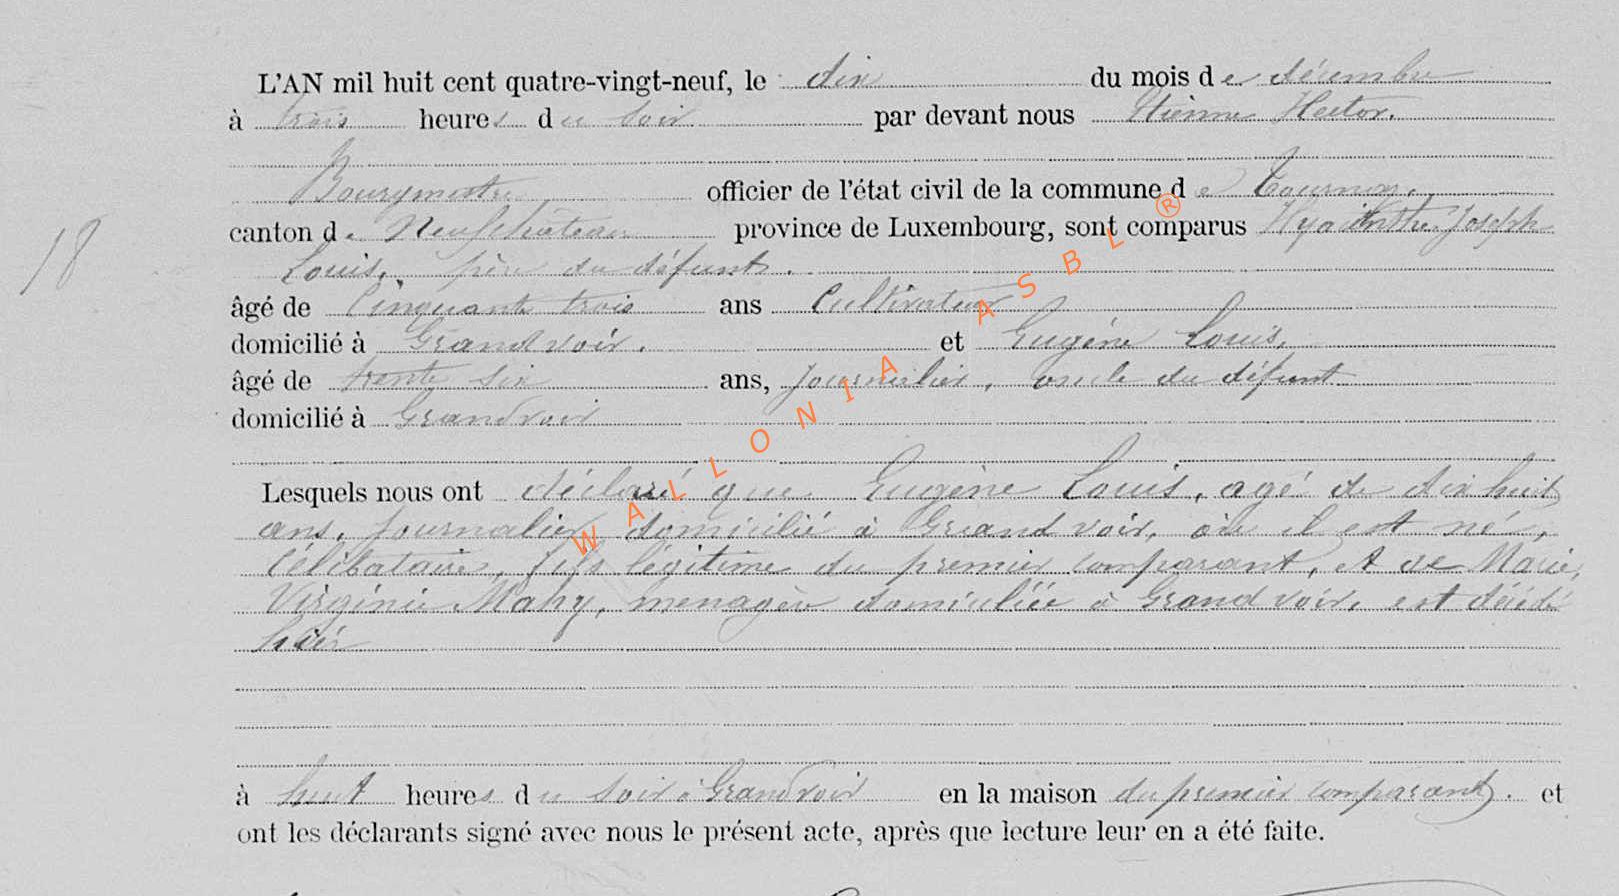 L'AN mil huit cent quatre-vingt-neuf, le dix du mois de décembre
à trois heures du soir par devant nous Etienne Hector.
Bourgmestre officier de l'état civil de la commune de Tournay.
18
canton de Neufchâteau province de Luxembourg, sont comparus Hyacinthe Joseph
Louis, père du défunt.
âgé de Cinquante trois ans Cultivateur
domicilié à Grandvoir. et Eugène Louis,
âgé de trente six ans, Journalier, oncle du défunt
domicilié à Grandvoir
Lesquels nous ont déclaré que Eugène Louis, agé de dix huit
ans, journalier domicilié à Grandvoir, où il est né,
Célibataire, fils légitime du premier comparant, et de Marie,
Virginie Mahy, menagère domiciliée à Grandvoir, est décédé
hier
à huit heures du soir à Grandvoir en la maison du premier comparant. et
ont les déclarants signé avec nous le présent acte, après que lecture leur en a été faite.
WALLONIA ASBL ®